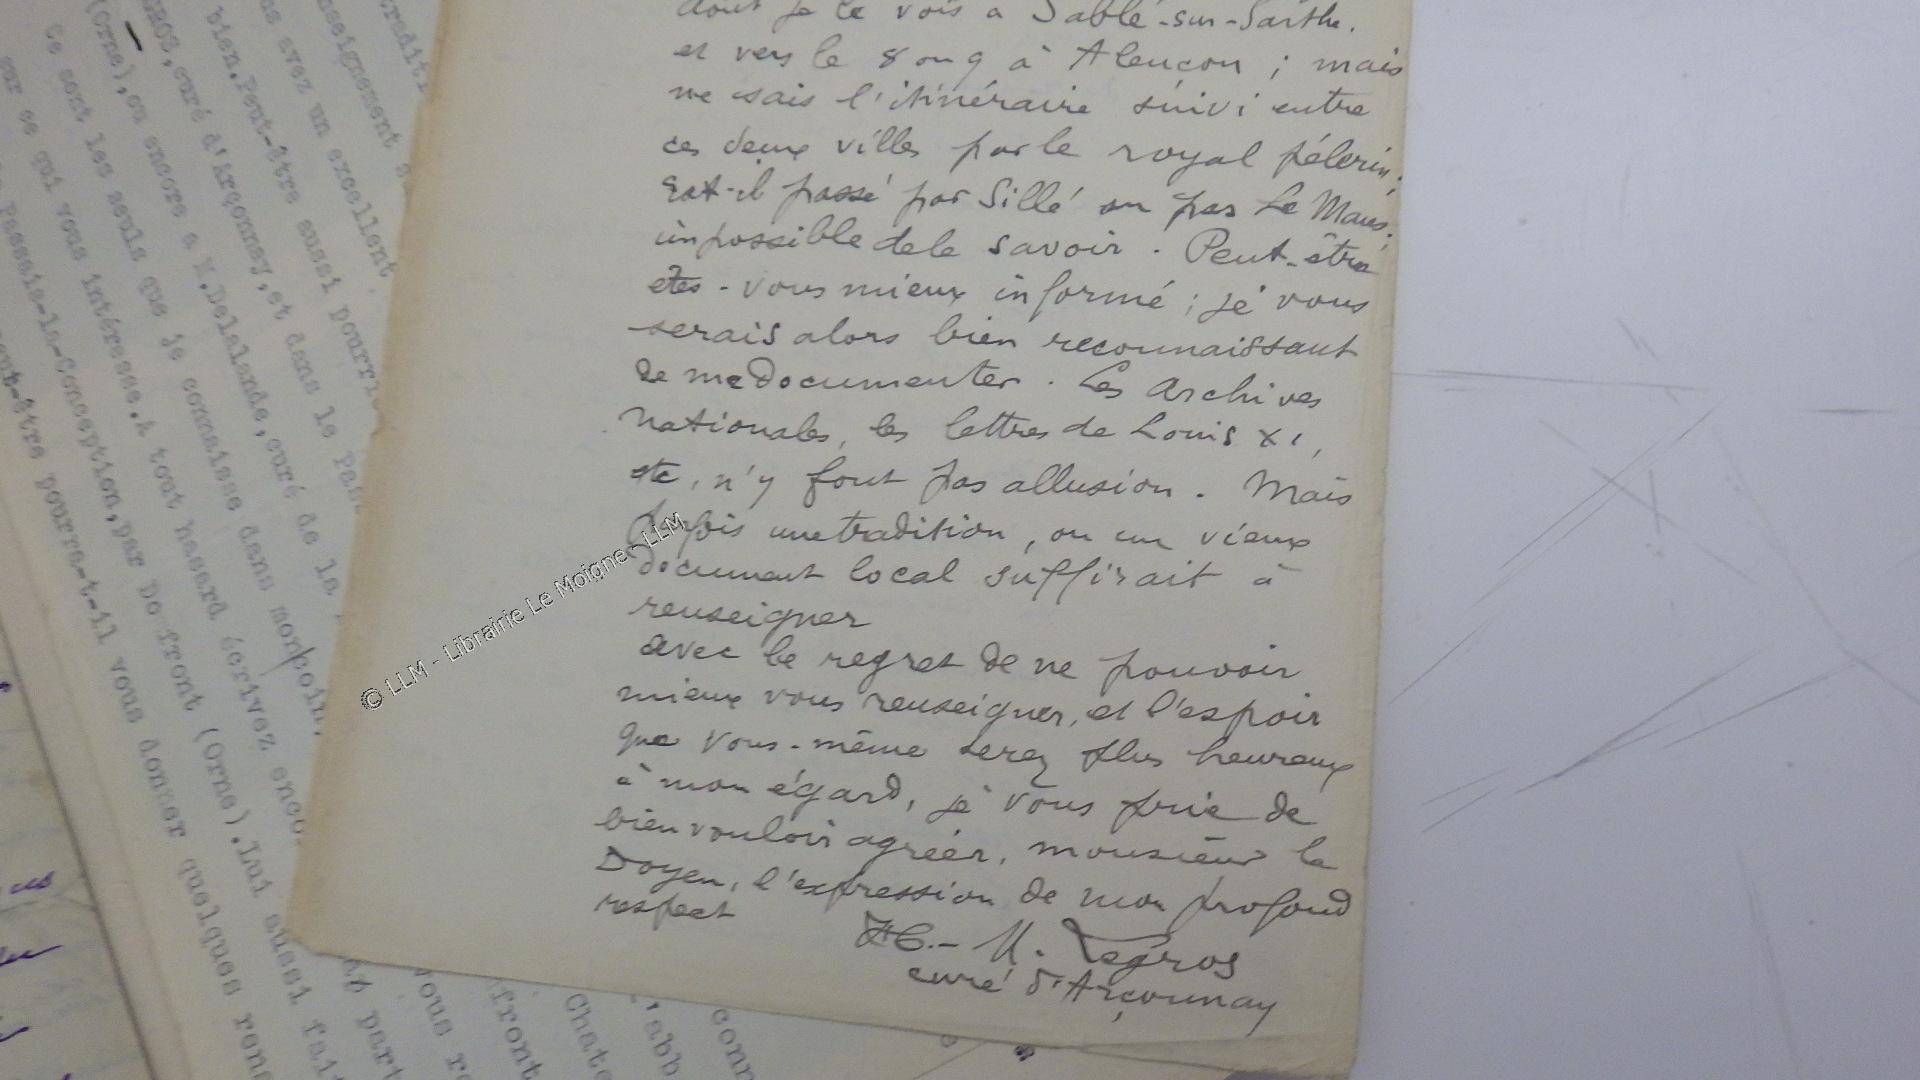 dont je le vois à Sablé-sur-Sarthe.
et vers le 8 ou 9 à Alençon ; mais
ne sais l'itinéraire suivi entre
ces deux villes par le royal pélerin ;
est-il passé par Sillé ou par Le Mans ;
impossible de le savoir . Peut-être
êtes-vous mieux informé ; je vous
serais alors bien reconnaissant
de me documenter . Les Archives
Nationales, les lettres de Louis XI,
etc, n'y font pas allusion . Mais
Parfois une tradition, ou un vieux
document local suffirait à
renseigner
avec le regret de ne pouvoir
mieux vous renseigner, et l'espoir
que vous-même serez plus heureux
à mon égard, je vous prie de
bien vouloir agréer, monsieur le
Doyen, l'expression de mon profond
respect
H.- M. Legros
curé d'Arçonnay
© LLM - Librairie Le Moigne - LLM
crédit
nseignement
us avez un excellent
bien. Peut-être aussi pourri
GROS, curé d'Arçonnay, et dans le Pass
(Orne), ou encore a M. Delalande, curé de la
Ce sont les seuls que je connaisse dans mon
sur ce qui vous intéresse. A tout hasard écrivez enco
Passais-la-Conception, par Domfront (Orne). Lui aussi fait
peut-être pourra-t-il vous donner quelques rens